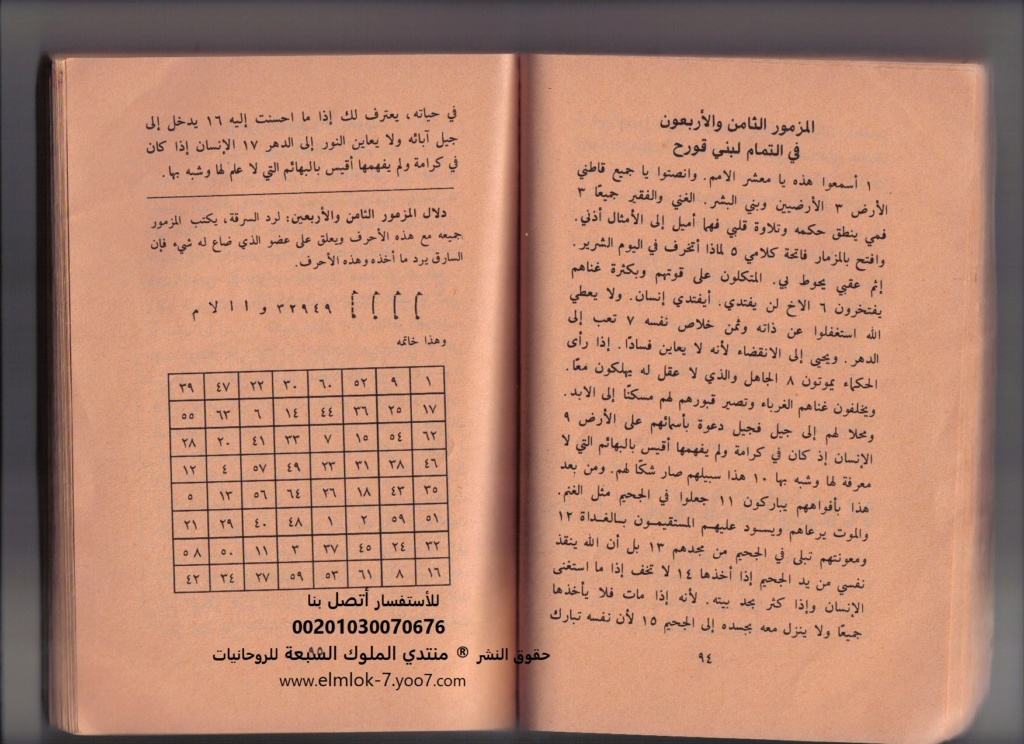 المزمور الثامن والأربعون
في التمام لبني قورح
١ أسمعوا هذه يا معشر الامم. وانصتوا يا جميع قاطني
الأرض ٣ الأرضيين وبني البشر. الغني والفقير جميعًا ٣
فمي ينطق حكمه وتلاوة قلبي فهما أميل إلى الأمثال أذني.
وافتح بالمزمار فاتحة كلامي ٥ لماذا أتخرف في اليوم الشرير.
إثم عقبي يحوط بي. المتكلون على قوتهم وبكثرة غناهم
يفتخرون ٦ الاخ لن يفتدي. أيفتدي إنسان. ولا يعطي
الله استغفلوا عن ذاته وثمن خلاص نفسه ٧ تعب إلى
الدهر. ويحيى إلى الانقضاء لأنه لا يعاين فسادًا. إذا رأى
الحكماء يموتون ٨ الجاهل والذي لا عقل له يهلكون معًا.
ويخلفون غناهم الغرباء وتصير قبورهم لهم مسكنًا إلى الابد.
ومحلا لهم إلى جيل فجيل دعوة بأسمائهم على الأرض ٩
الإنسان إذ كان في كرامة ولم يفهمها أقيس بالبهائم التي لا
معرفة لها وشبه بها ١٠ هذا سبيلهم صار شكًا لهم. ومن بعد
هذا بأفواههم يباركون ١١ جعلوا في الجحيم مثل الغنم.
والموت يرعاهم ويسود عليهم المستقيمون بالغداة ١٢
ومعونتهم تبلى في الجحيم من مجدهم ١٣ بل أن الله ينقذ
نفسي من يد الجحيم إذا أخذها ١٤ لا تخف إذا ما استغنى
الإنسان وإذا كثر بجد بيته. لأنه إذا مات فلا يأخذها
جميعًا ولا ينزل معه بجسده إلى الجحيم ١٥ لأن نفسه تبارك
٩٤
في حياته، يعترف لك إذا ما احسنت إليه ١٦ يدخل إلى
جيل آبائه ولا يعاين النور إلى الدهر ١٧ الإنسان إذا كان
في كرامة ولم يفهمها أقيس بالبهائم التي لا علم لها وشبه بها.
دلال المزمور الثامن والأربعين: لرد السرقة، يكتب المزمور
جميعه مع هذه الأحرف ويعلق على عضو الذي ضاع له شيء فإن
السارق يرد ما أخذه وهذه الأحرف.
٣٢٩٤٩ و ا ا لا م
وهذا خاتمه
١ ٩ ٥٢ ٦٠ ٣٠ ٢٢ ٤٧ ٣٩
١٧ ٢٥ ٣٦ ٤٤ ١٤ ٦ ٦٣ ٥٥
٦٢ ٥٤ ١٥ ٧ ٣٣ ٤١ ٢٠ ٢٨
٤٦ ٣٨ ٣١ ٢٣ ٤٩ ٥٧ ٤ ١٢
٣٥ ٤٣ ١٨ ٢٦ ٦٤ ٥٦ ١٣ ٥
٥١ ٥٩ ٢ ١ ٤٨ ٤٠ ٢٩ ٢١
٣٢ ٢٤ ٤٥ ٣٧ ٣ ١١ ٥٠ ٥٨
١٦ ٨ ٦١ ٥٣ ٥٩ ٢٧ ٣٤ ٤٢
للأستفسار أتصل بنا
00201030070676
حقوق النشر ® منتدي الملوك السبعة للروحانيات
www.elmlok-7.yoo7.com